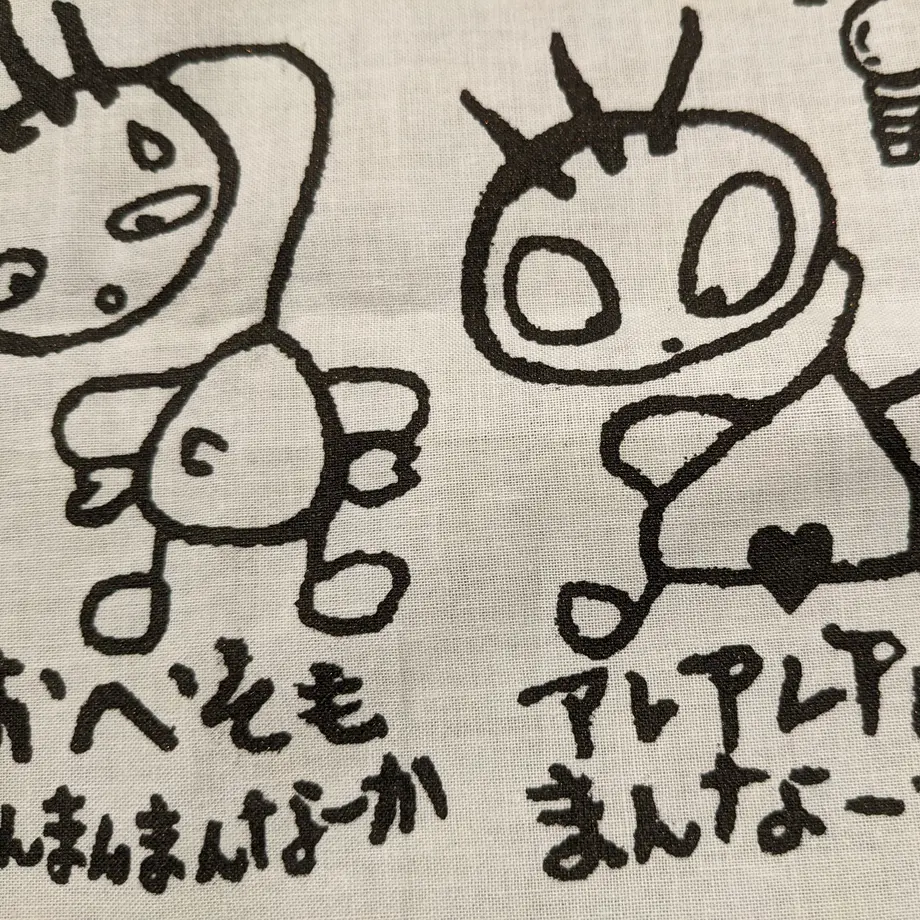 おへそも
んまんまんまんなーか
アレアレア
まんなー